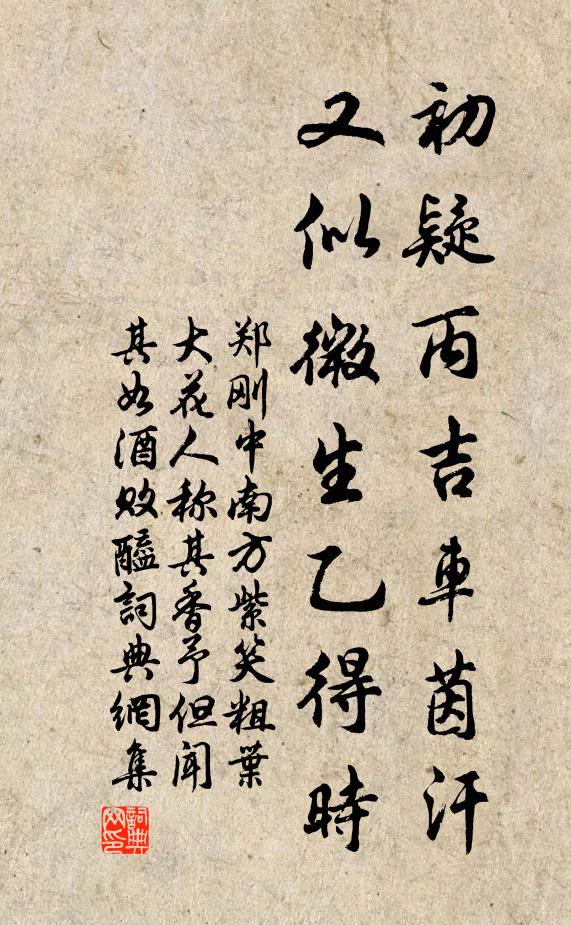 初疑丙吉車茵汗
又似微生乙得時
郑刚中南方紫笑粗葉
大花人称其香予但闻
其如酒败醯詞典網集
詞典网印